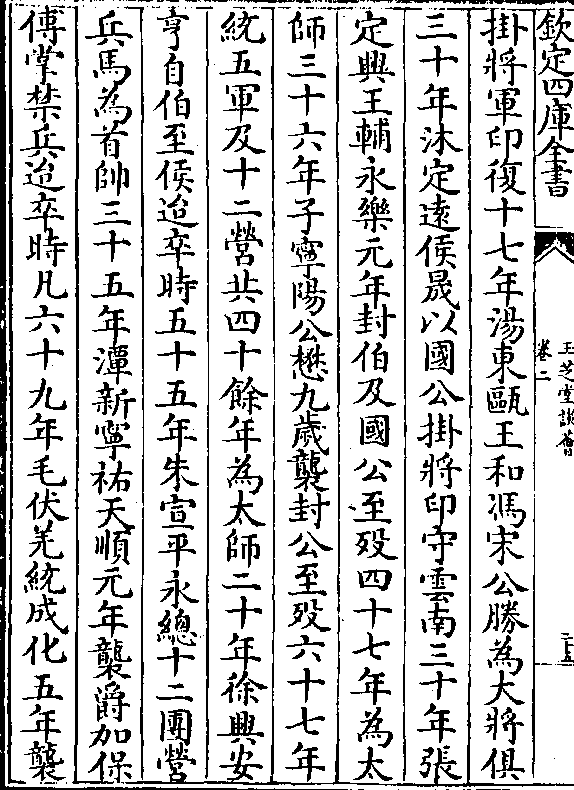 欽定四庫全書
玉芝堂談薈
卷二
二十五
掛將軍印復十七年湯東甌王和馮宋公勝為大將俱
三十年沐定遠侯晟以國公掛將印守雲南三十年張
定興王輔永樂元年封伯及國公至歿四十七年為太
師三十六年子寧陽公懋九歲襲封公至歿六十七年
統五軍及十二營共四十餘年為太師二十年徐興安
亨自伯至侯迨卒時五十五年朱宣平永總十二團營
兵馬為首帥三十五年潭新寧祐天順元年襲爵加保
傅掌禁兵迨卒時凡六十九年毛伏羌統成化五年襲